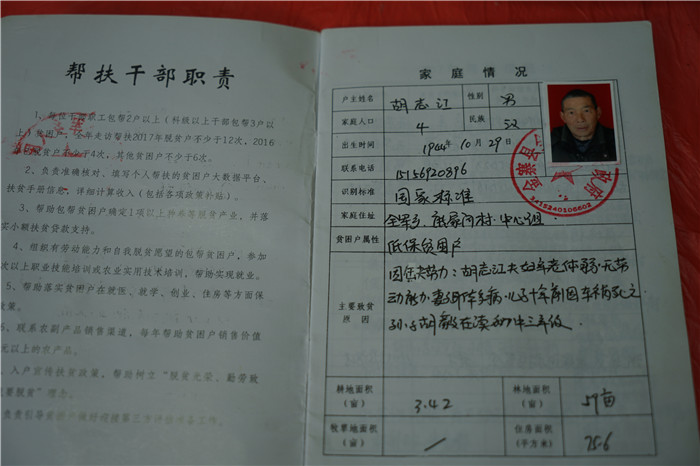 帮扶干部职责
1、每位干部职工包帮2户以上（科级以上干部包帮3户以
上）贫困户，全年走访帮扶2017年脱贫户不少于12次，2016
脱贫户不少于4次，其他贫困户不少于6次。
2、负责准确核对、填写个人帮扶的贫困户大数据平台、
扶贫手册信息，详细计算收入（包括各项政策补贴）。
3、帮助包帮贫困户确定1项以上种养等脱贫产业，并落
实小额扶贫贷款支持。
4、组织有劳动能力和自我脱贫愿望的包帮贫困户，参加
次以上职业技能培训或农业实用技术培训，帮助实现就业。
5、帮助落实贫困户在就医、就学、创业、住房等方面保
政策。
、联系农副产品销售渠道，每年帮助贫困户销售价值
元以上的农产品。
、入户宣传扶贫政策，帮助树立“脱贫光荣、勤劳致
要脱贫”理念。
负责引导贫困户做好迎接第三方评估准备工作。
家庭情况
户主姓名 胡志江 性别 男
家庭人口 4 民族 汉
出生时间 1944年10月29日
联系电话 15156920896
识别标准 国家标准
家庭住址 全军乡 熊家河村 中心组
贫困户属性 低保贫困户
主要致贫原因
因缺劳力：胡志江夫妇年老体弱，无劳
动能力，妻 体多病，儿子十年前因车祸死亡
孙子胡 在读初中三年级
耕地面积（亩） 3.42 林地面积（亩） 59亩
牧草地面积（亩） / 住房面积（平方米） 75.6
金寨县
3415240106602